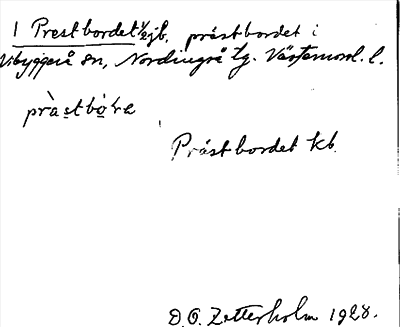 1 Prestbordet 1/2 jb, prästbordet i
Vibyggerå sn, Nordingrå tg. Västernorrl. l.
Prästbordet kb.
D. O. Zetterholm 1928.